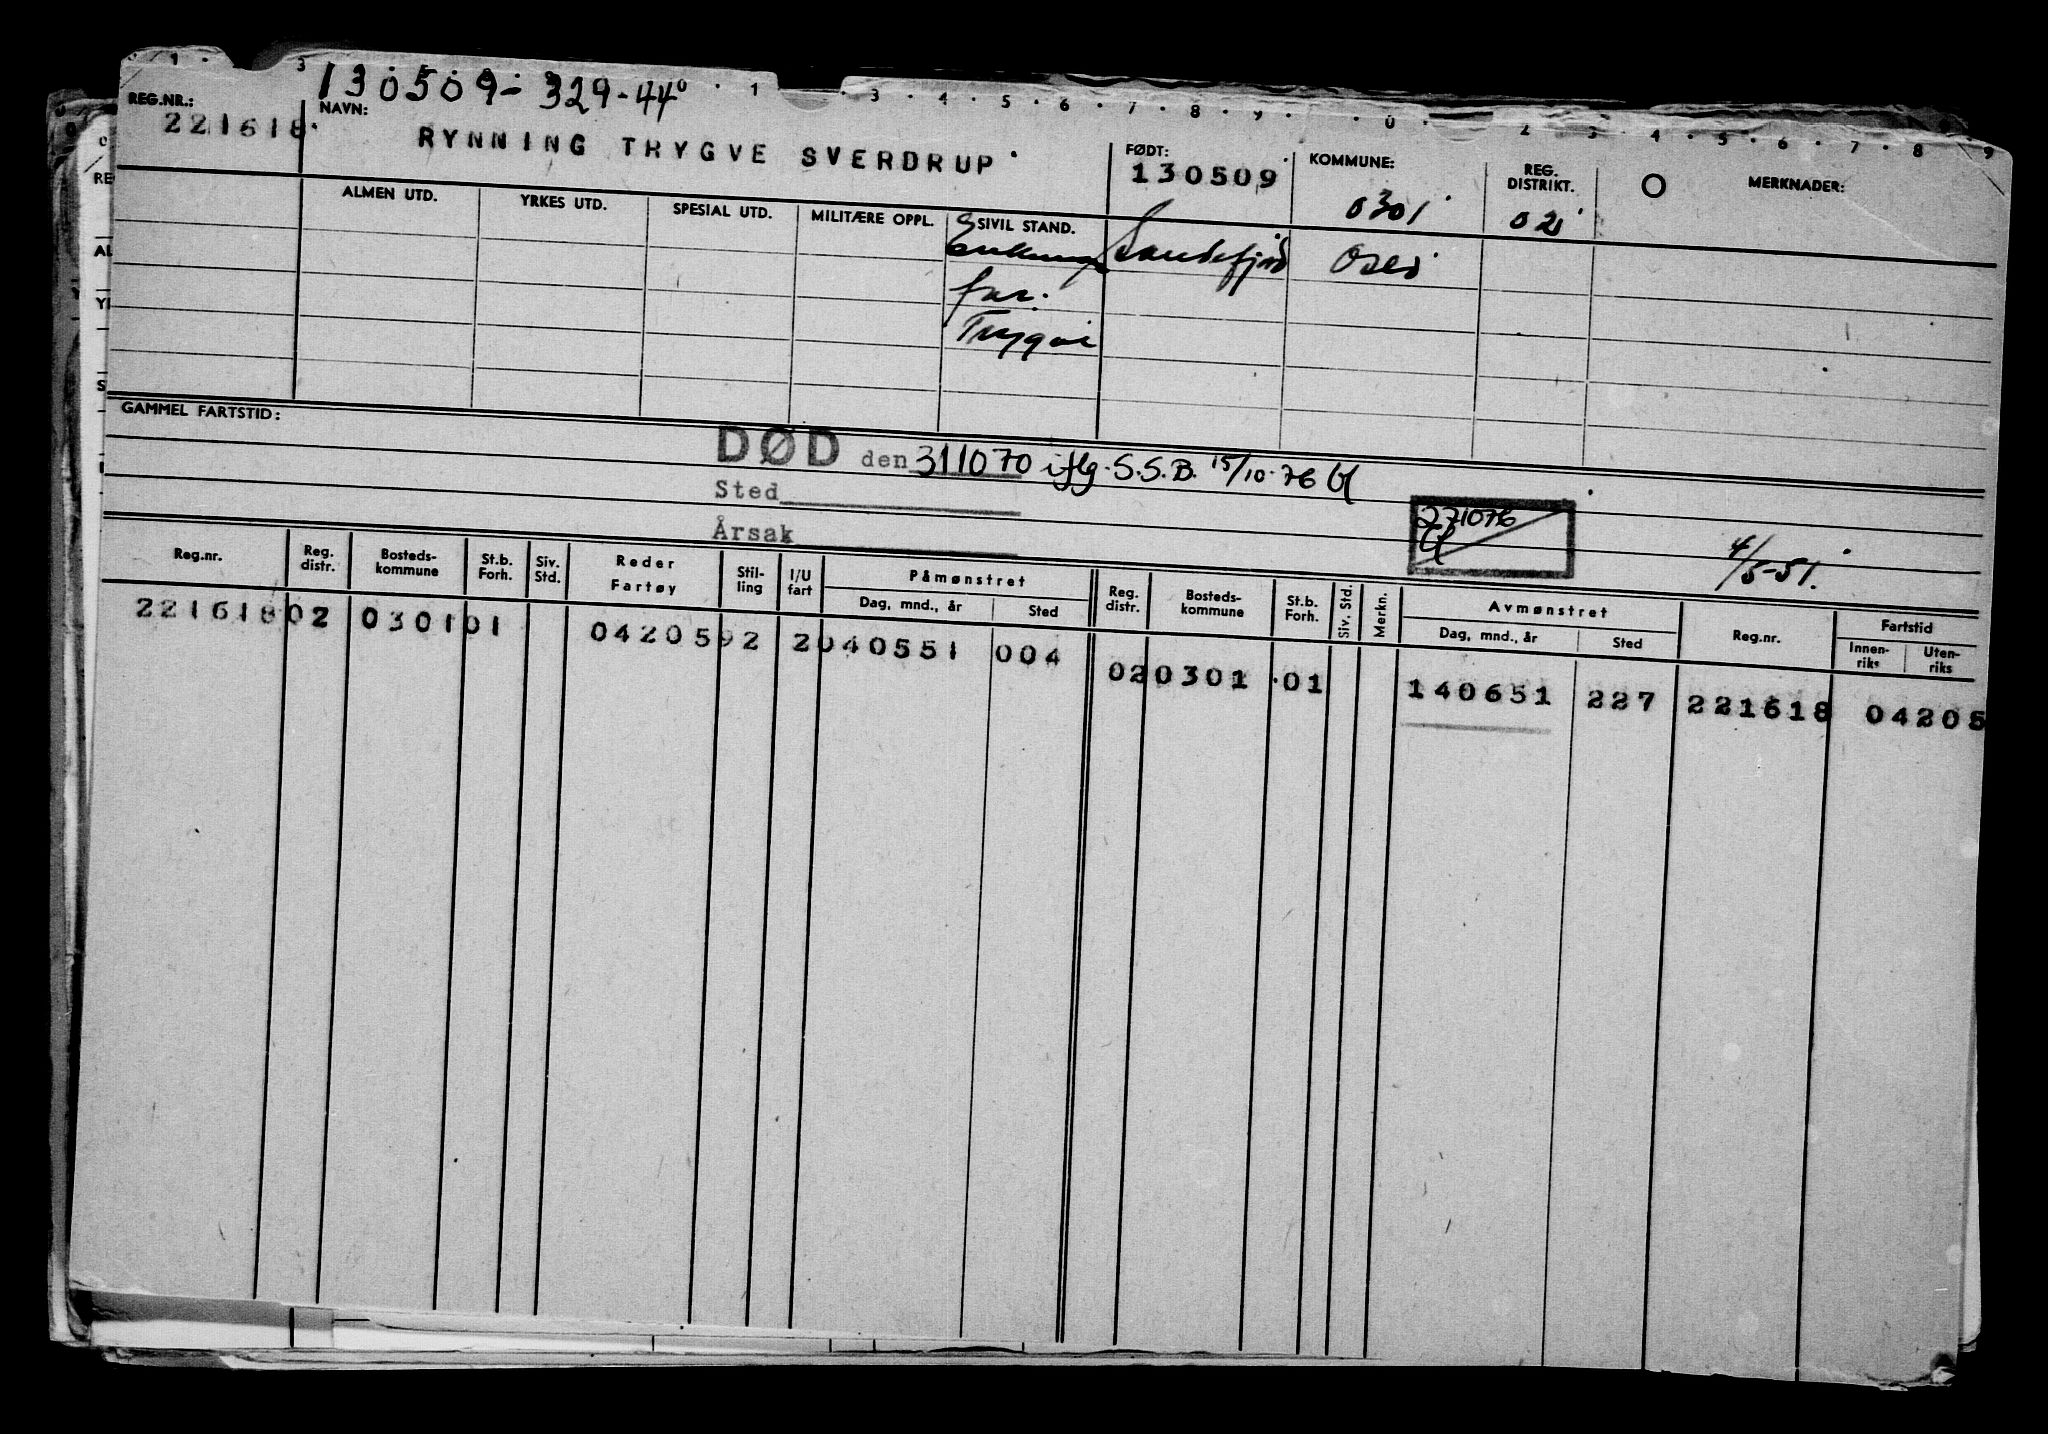 130509-329-44
REG.NR.: NAVN:
221618. RYNNING TRYGVE SVERDRUP
FØDT: KOMMUNE: REG. DISTRIKT. MERKNADER:
130509 0301 02
ALMEN UTD. YRKES UTD. SPESIAL UTD. MILITÆRE OPPL. SIVIL STAND.
Sandefjord Oslo
far.
Trygve
GAMMEL FARTSTID:
DØD den 311070 iflg. S.S.B. 15/10-76
Sted
271076
Årsak
4/5-51.
Reg.nr. Reg. distr. Bosteds-kommune St.b. Forh. Siv. Std. Reder Fartøy Stil-ling I/U fart Påmønstret Dag, mnd., år Sted Reg. distr. Bosteds-kommune St.b. Forh. Siv. Std. Merkn. Avmønstret Dag, mnd., år Sted Reg.nr. Fartstid Innen-riks Uten-riks
221618 02 0301 01 04205 92 2 040551 004 02 0301 01 140651 227 221618 04205